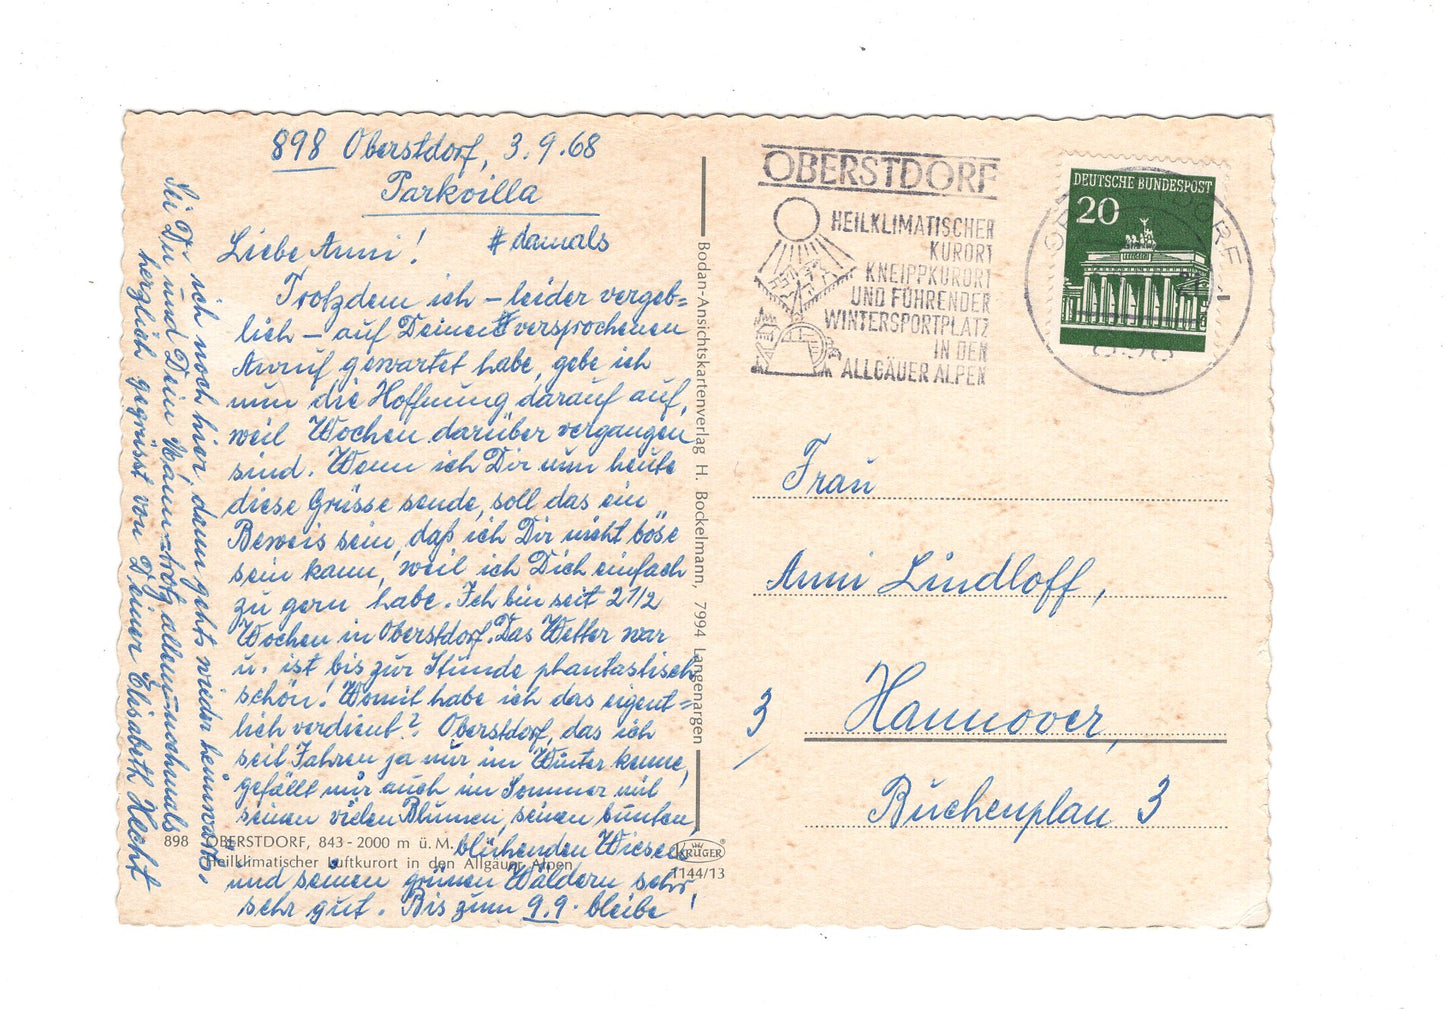 898 Oberstdorf, 3.9.68
Parkvilla
Liebe Anni! # damals
Trotzdem ich – leider vergeb=
lich – auf Deinen # versprochenen
Anruf gewartet habe, gebe ich
nun die Hoffnung darauf auf,
weil Wochen darüber vergangen
sind. Wenn ich Dir nun heute
diese Grüsse sende, soll das ein
Beweis sein, daß ich Dir nicht böse
sein kann, weil ich Dich einfach
zu gern habe. Ich bin seit 2 1/2
Wochen in Oberstdorf. Das Wetter war
u. ist bis zur Stunde phantastisch
schön! Womit habe ich das eigent=
lich verdient? Oberstdorf, das ich
seit Jahren ja nur im Winter kenne,
gefällt mir auch im Sommer mit
seinen vielen Blumen, seinen bunten,
blühenden Wiesen
und seinen grünen Wäldern sehr,
sehr gut. Bis zum 9.9. bleibe
ich noch hier, dann gehts wieder heimwärts.
Sei Du und Dein Mann trotz allem nochmals
herzlich gegrüsst von Deiner Elisabeth Hecht
898 OBERSTDORF, 843 - 2000 m ü. M.
Heilklimatischer Luftkurort in den Allgäuer Alpen
Bodan-Ansichtskartenverlag H. Bockelmann, 7994 Langenargen
KRÜGER
1144/13
OBERSTDORF
HEILKLIMATISCHER
KURORT
KNEIPPKURORT
UND FÜHRENDER
WINTERSPORTPLATZ
IN DEN
ALLGÄUER ALPEN
DEUTSCHE BUNDESPOST
20
898
Frau
Anni Lindloff,
3 Hannover,
Buchenplan 3